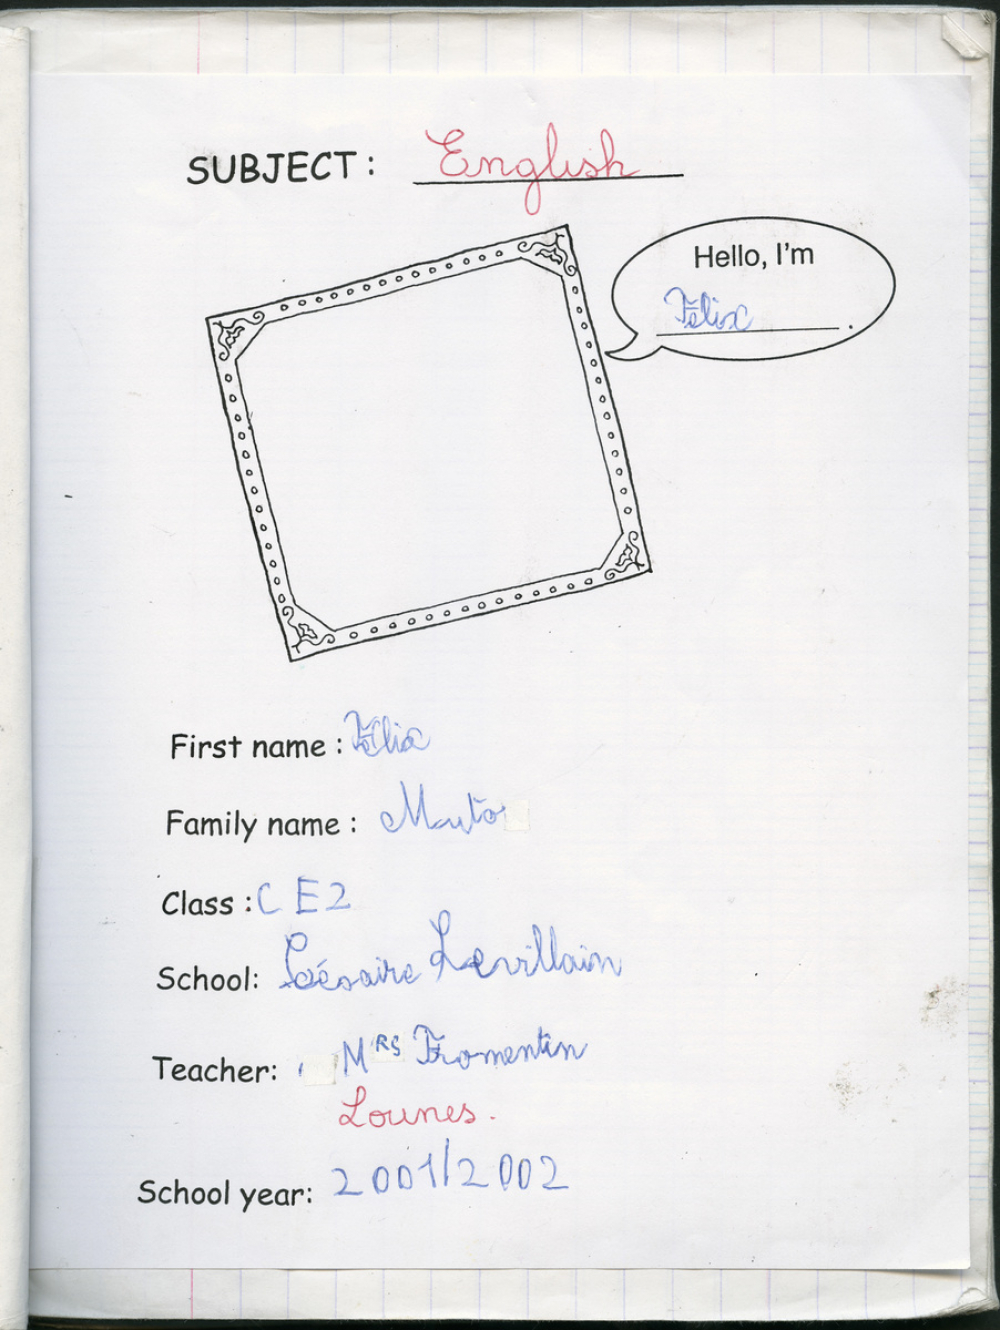 SUBJECT : English
Hello, I'm
Félix .
First name : Félix
Family name : Muto
Class : CE2
School: Césaire Levillain
Teacher: MRS Fromentin
Lounes.
School year: 2001/2002